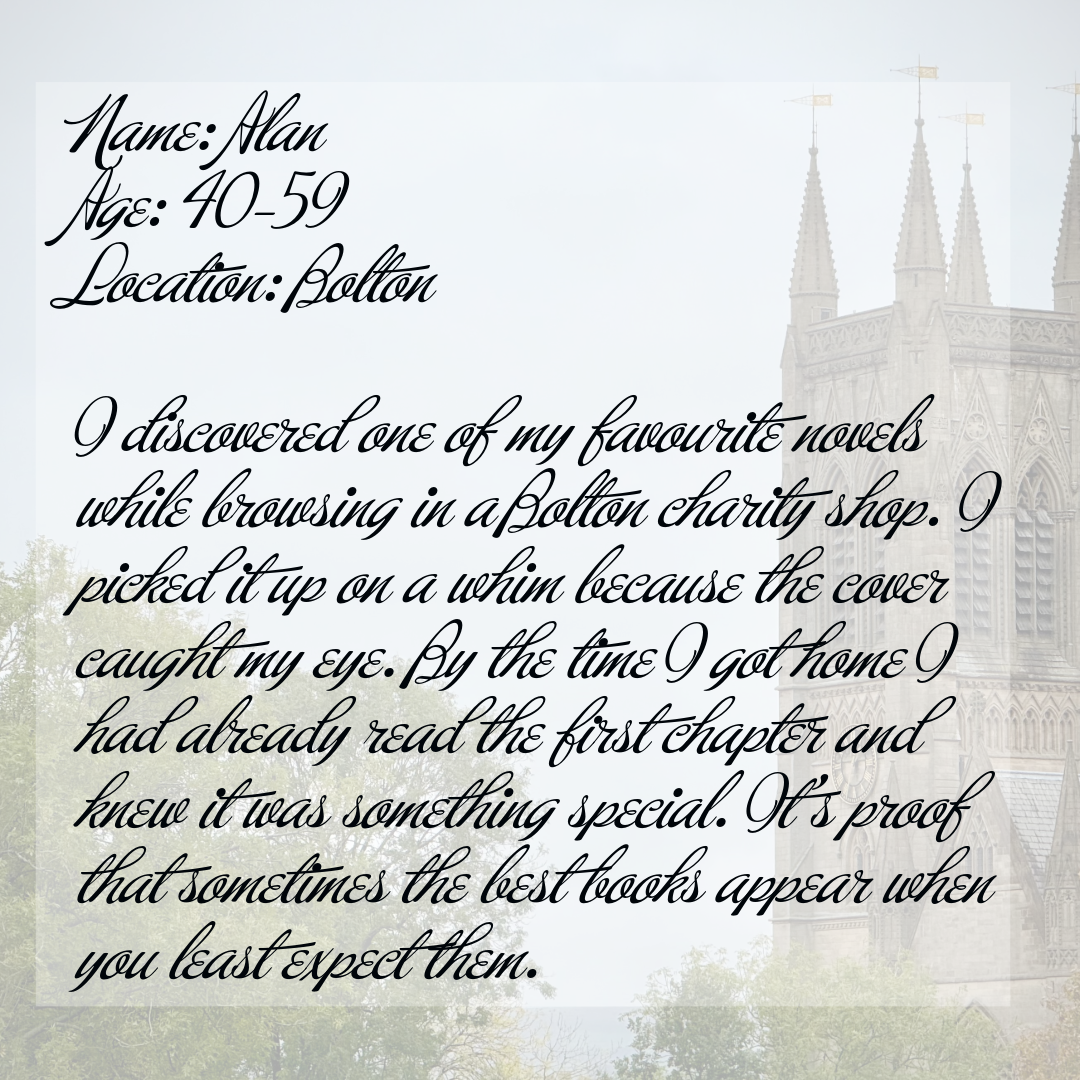 Name: Alan
Age: 40-59
Location: Bolton
I discovered one of my favourite novels
while browsing in a Bolton charity shop. I
picked it up on a whim because the cover
caught my eye. By the time I got home I
had already read the first chapter and
knew it was something special. It's proof
that sometimes the best books appear when
you least expect them.